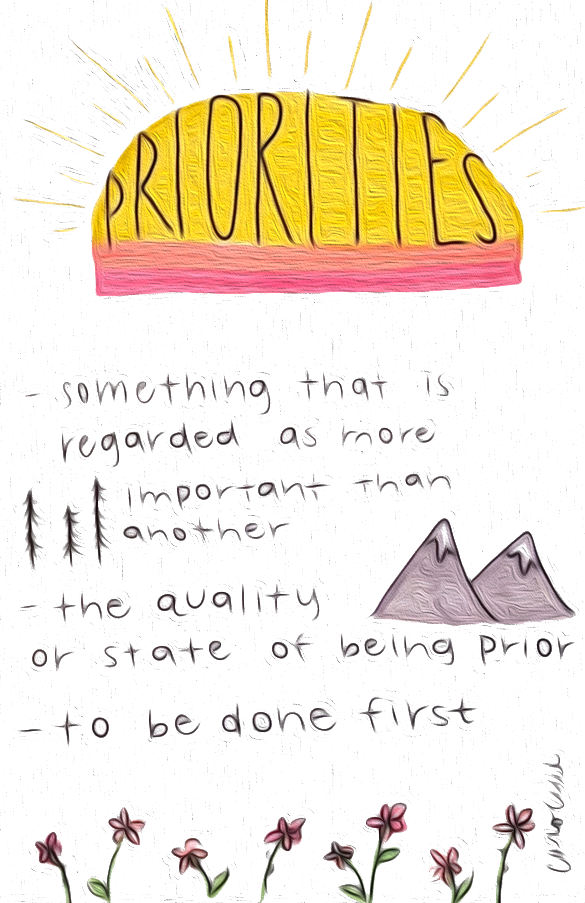 PRIORITIES
- something that is
regarded as more
important than
another
- the quality
or state of being prior
- to be done first